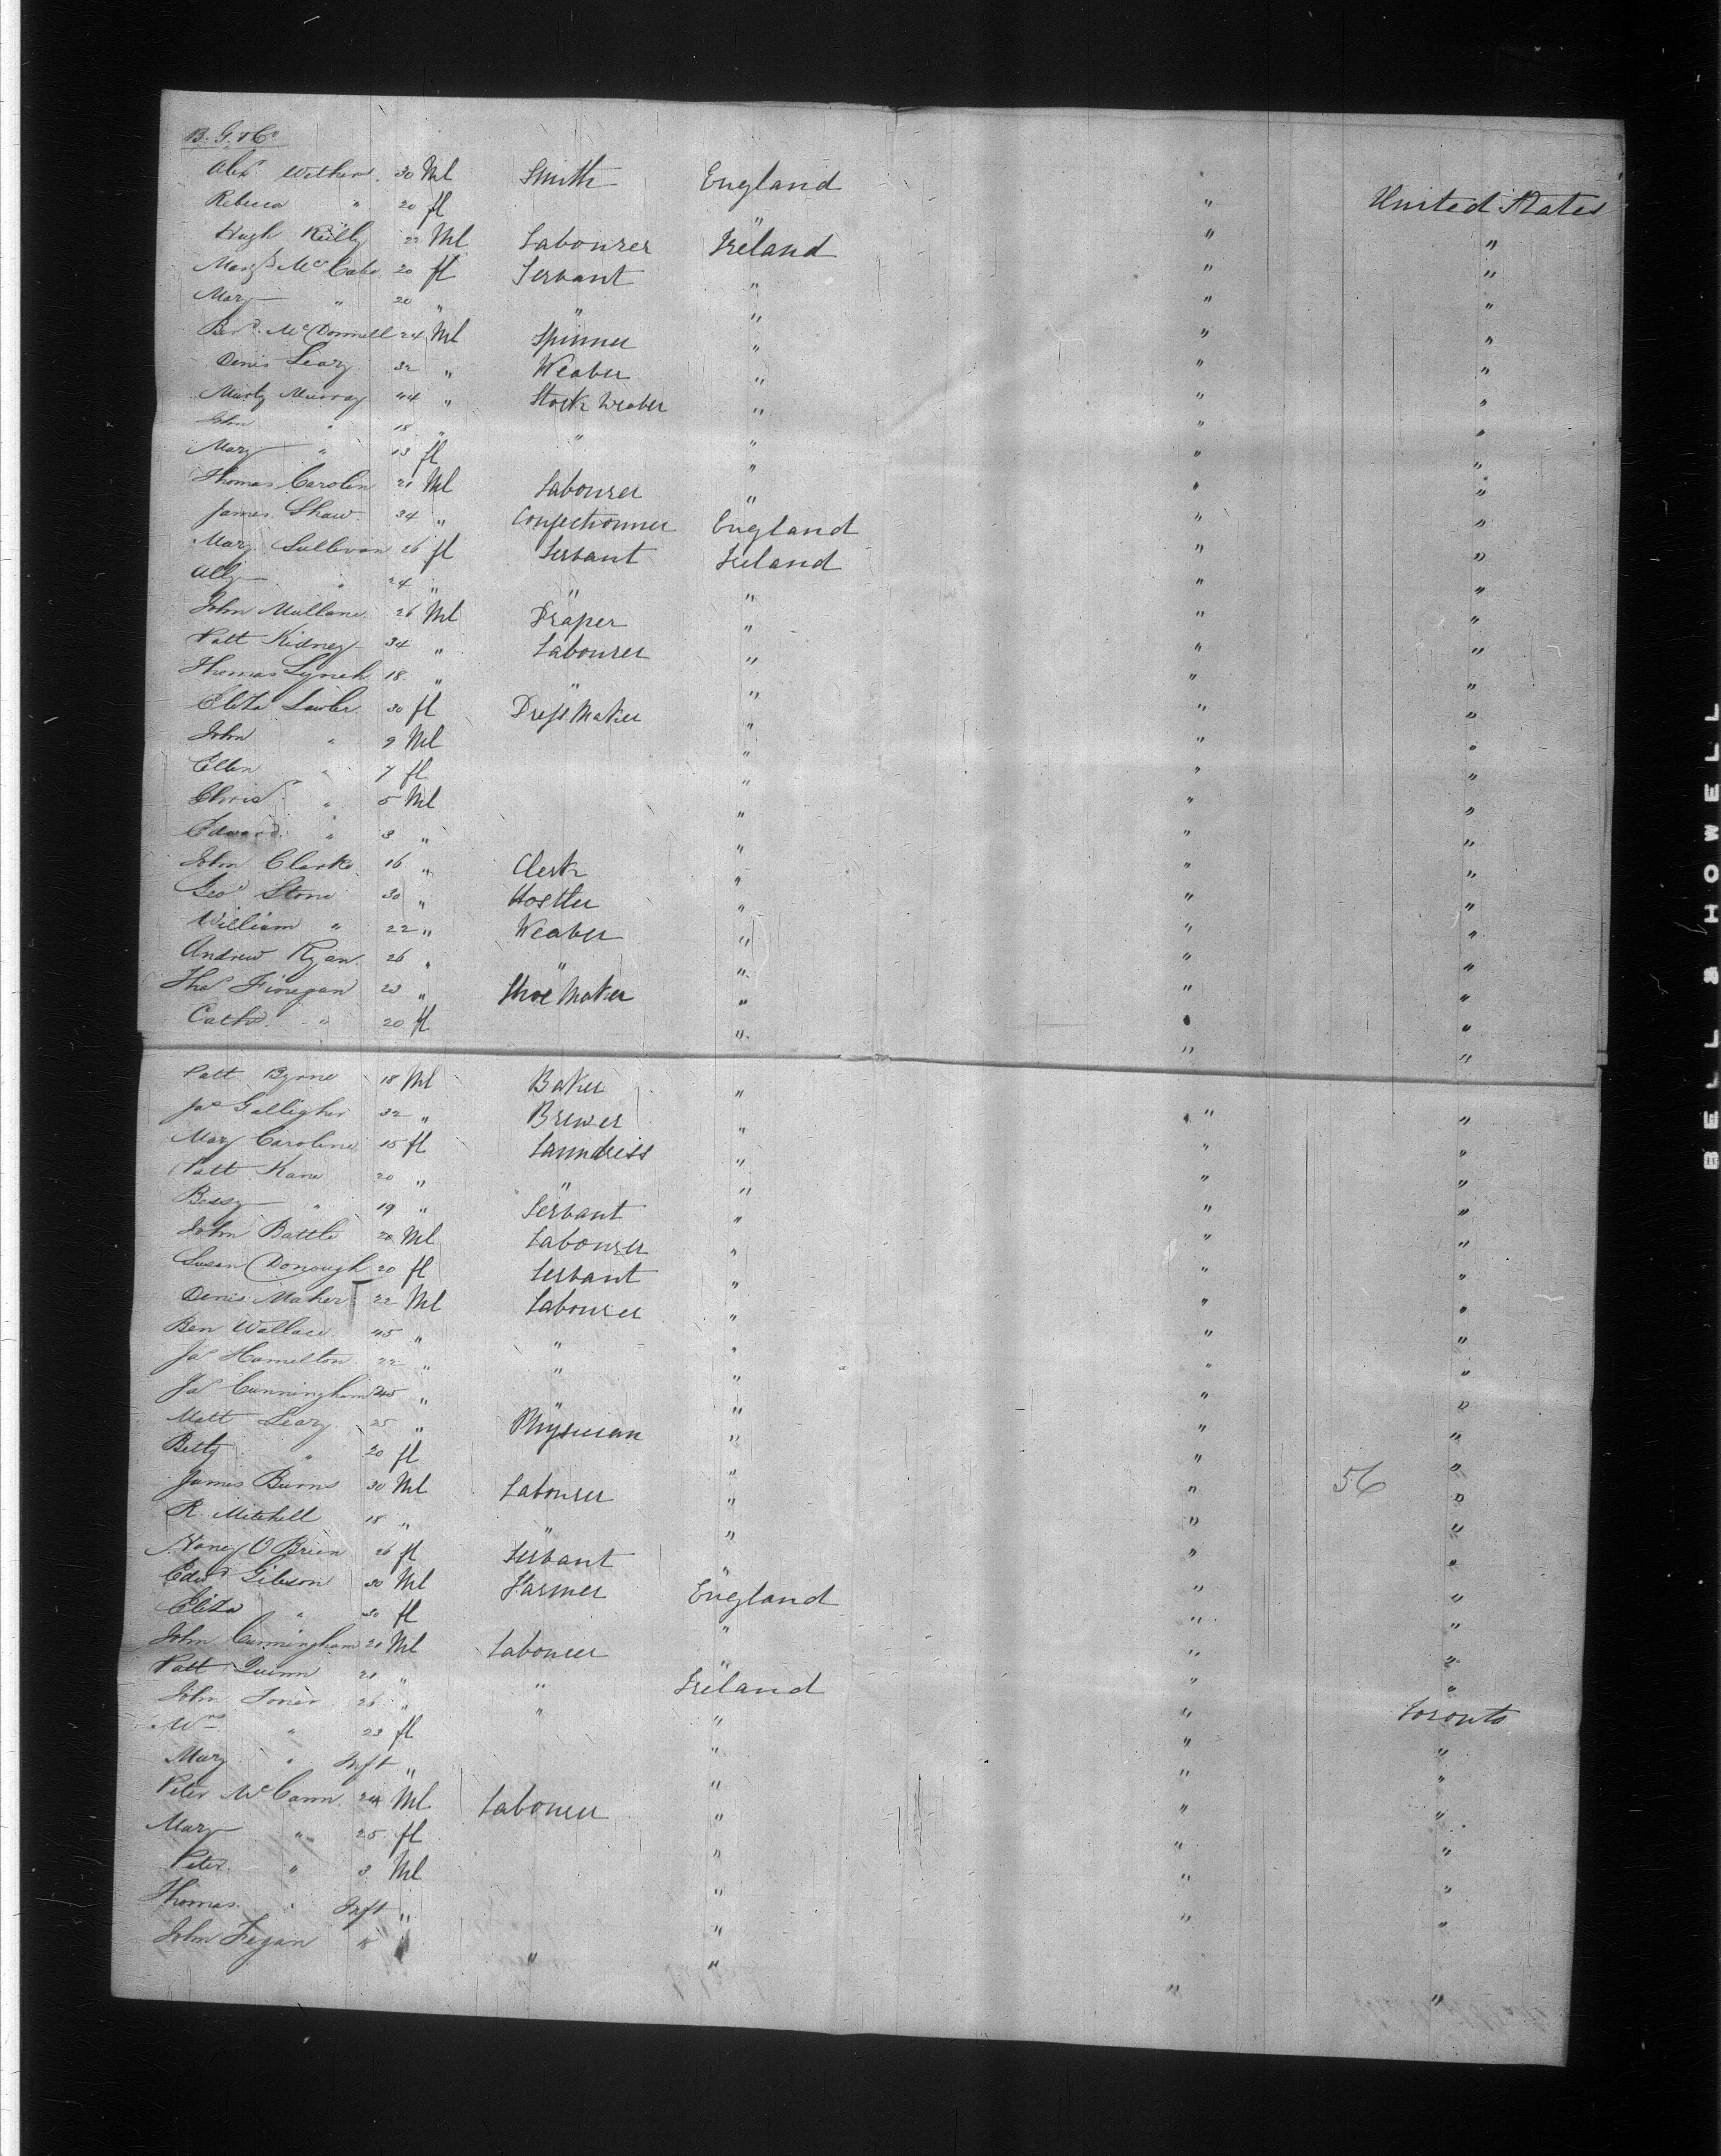 B. G. & Co
Alexr Wether 30 Ml Smith England "
Rebecca " 20 fl " " United States
Hugh Reilly 22 Ml Labourer Ireland " "
Margt McCabe 20 fl Servant " " "
Mary " 20 " " " " "
Berd McDonnell 24 Ml Spinner " " "
Denis Leary 32 " Weaver " " "
Murty Murray 44 " Stock Weaver " " "
John " 18 " " " " "
Mary " 13 fl " " "
Thomas Carolin 21 Ml Labourer " " "
James Shaw 34 " Confectionner England " "
Mary Sullivan 26 fl Servant Ireland " "
Ally " 24 " " " " "
John Mullane 26 Ml Draper " " "
Patt Kidney 34 " Labourer " " "
Thomas Lynch 18 " " " " "
Eliza Lawler 30 fl Dress Maker " " "
John " 9 Ml " " "
Ellen " 7 fl " " "
Chris " 5 Ml " " "
Edward " 3 " " " "
John Clarke 16 " Clerk " " "
Geo Stone 30 " Hostler " " "
William " 22 " Weaver " " "
Andrew Ryan 26 " " " " "
Thos Finegan 23 " Shoe Maker " " "
Cathe " 20 fl " " "
Patt Byrne 18 Ml Baker " " "
Jas Galligher 32 " Brewer " " "
Mary Caroline 15 fl Laundress " " "
Patt Kane 20 " " " " "
Bessy " 19 " Servant " " "
John Battle 20 Ml Labourer " " "
Susan Donough 20 fl Servant " " "
Denis Maher 22 Ml Labourer " " "
Ben Wallace 45 " " " " "
Jas Hamelton 22 " " " " "
Jas Cunningham 245 " " " " "
Matt Leary 25 " Physician " " "
Betty " 20 fl " " "
James Burns 30 Ml Labourer " " 56 "
R. Mitchell 18 " " " " "
Nancy O Brien 26 fl Servant " " "
Edwd Gibson 30 Ml Farmer England " "
Eliza " 30 fl " " "
John Cunningham 21 Ml Labourer " " "
Patt Quinn 21 " " Ireland " "
John Toner 26 " " " " Toronto
Mrs " 23 fl " " "
Mary " Inft " " " "
Peter McCann 24 Ml Labourer " " "
Mary " 25 fl " " "
Peter " 3 Ml " " "
Thomas " Inft " " " "
John Fegan 18 " " " "
BELL & HOWELL